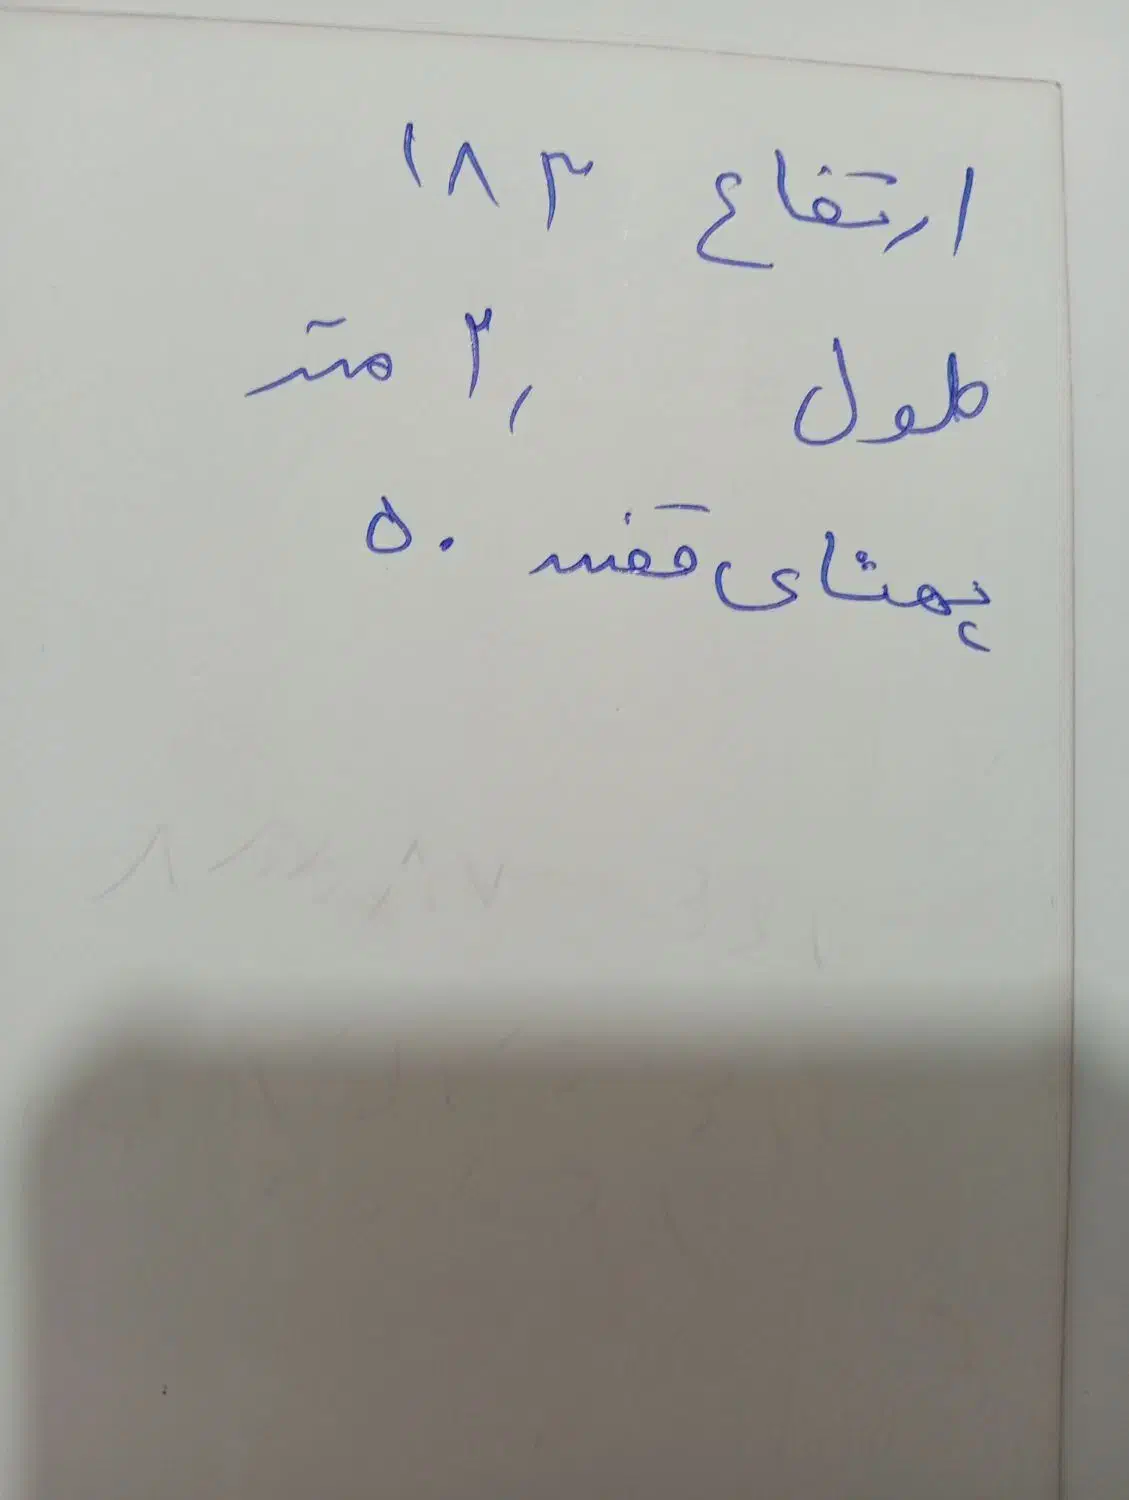 ارتفاع ۱۸۳
طول ۲ متر
پهنای قفسه ۵۰